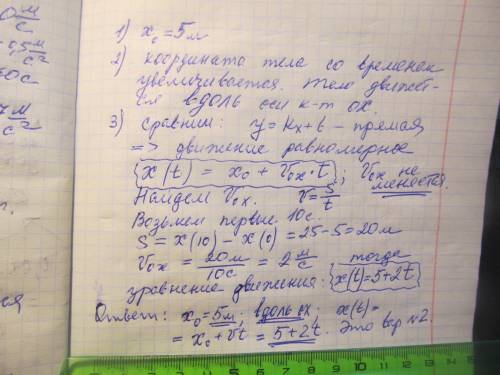 0 м/с
0,5 м/с²
50с
м/с²
1) x₀ = 5м
2) координата тела со временем
увеличивается. Тело движет-
ся вдоль оси к-т OX.
3) сравним: y = kx + b – прямая
=> движение равномерное
x(t) = x₀ + V₀ₓ·t; V₀ₓ не
меняется.
Найдем V₀ₓ. V = S/t
Возьмем первые 10с.
S = x(10) – x(0) = 25 – 5 = 20м
V₀ₓ = 20м/10с = 2 м/с тогда
уравнение движения: x(t) = 5 + 2t
Ответ: x₀ = 5м; вдоль ox; x(t) =
= x₀ + vt = 5 + 2t. Это вар №2.
0 1 2 3 4 5 6 7 8 9 10 11 12 13 14 15 16